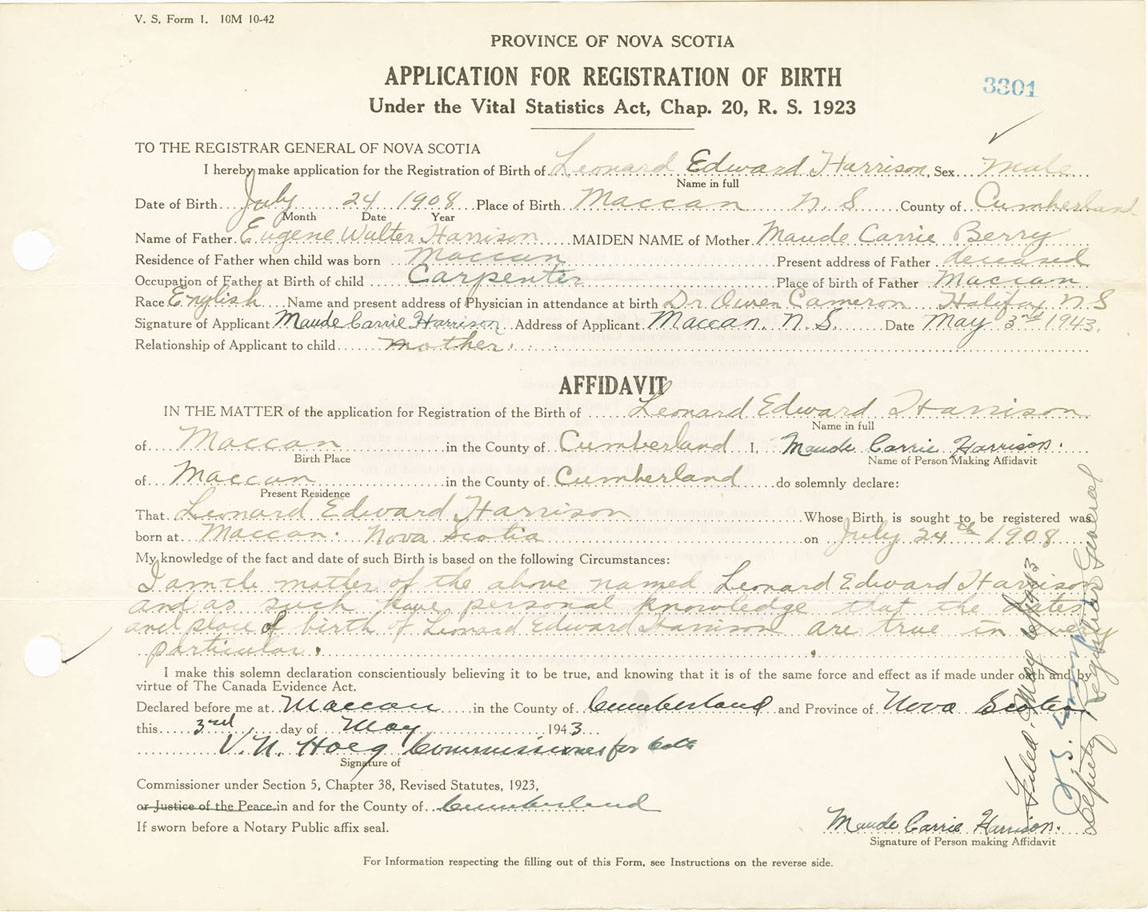 V. S. Form 1. 10M 10-42
PROVINCE OF NOVA SCOTIA
APPLICATION FOR REGISTRATION OF BIRTH
3301
Under the Vital Statistics Act, Chap. 20, R. S. 1923
TO THE REGISTRAR GENERAL OF NOVA SCOTIA
I hereby make application for the Registration of Birth of Leonard Edward Harrison, Sex Male
Name in full
Date of Birth July 24 1908 Place of Birth Maccan N S County of Cumberland
Month Date Year
Name of Father Eugene Walter Harrison MAIDEN NAME of Mother Maude Carrie Berry
Residence of Father when child was born Maccan Present address of Father deceased
Occupation of Father at Birth of child Carpenter Place of birth of Father Maccan
Race English Name and present address of Physician in attendance at birth Dr. Owen Cameron Halifax N S
Signature of Applicant Maude Carrie Harrison Address of Applicant Maccan. N. S. Date May 3rd 1943.
Relationship of Applicant to child mother.
AFFIDAVIT
IN THE MATTER of the application for Registration of the Birth of Leonard Edward Harrison
Name in full
of Maccan in the County of Cumberland I, Maude Carrie Harrison.
Birth Place Name of Person Making Affidavit
of Maccan in the County of Cumberland do solemnly declare:
Present Residence
That Leonard Edward Harrison Whose Birth is sought to be registered was
born at Maccan. Nova Scotia on July 24th 1908
My knowledge of the fact and date of such Birth is based on the following Circumstances:
I am the mother of the above named Leonard Edward Harrison
and as such have personal knowledge that the dates
and place of birth of Leonard Edward Harrison are true in every
particular.
I make this solemn declaration conscientiously believing it to be true, and knowing that it is of the same force and effect as if made under oath and by
virtue of The Canada Evidence Act.
Declared before me at Maccan in the County of Cumberland and Province of Nova Scotia
this 3rd day of May 1943
V. N. Hoeg Commissioner for
Signature of
Commissioner under Section 5, Chapter 38, Revised Statutes, 1923,
or Justice of the Peace in and for the County of Cumberland
If sworn before a Notary Public affix seal.
Maude Carrie Harrison.
Signature of Person making Affidavit
For Information respecting the filling out of this Form, see Instructions on the reverse side.
Filed. May 1943
Deputy Registrar General